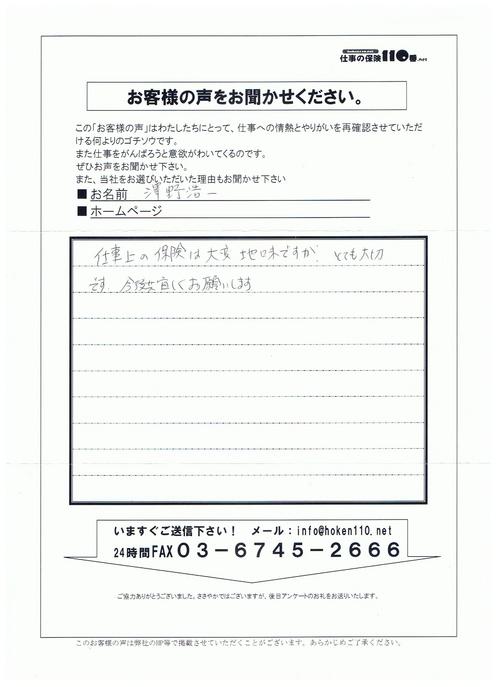 仕事の保険110番.net
お客様の声をお聞かせください。
この「お客様の声」はわたしたちにとって、仕事への情熱とやりがいを再確認させていただ
ける何よりのゴチソウです。
また仕事をがんばろうと意欲がわいてくるのです。
ぜひお声をお聞かせ下さい。
また、当社をお選びいただいた理由もお聞かせ下さい
■お名前 澤野浩一
■ホームページ
仕事上の保険は大変地味ですが、とても大切
です。今後共宜しくお願いします
いますぐご送信下さい！ メール：info@hoken110.net
24時間FAX０３－６７４５－２６６６
ご協力ありがとうございました。ささやかではございますが、後日アンケートのお礼をお送りいたします。
このお客様の声は弊社のHP等で掲載させていただくことがございます。あらかじめご了承ください。